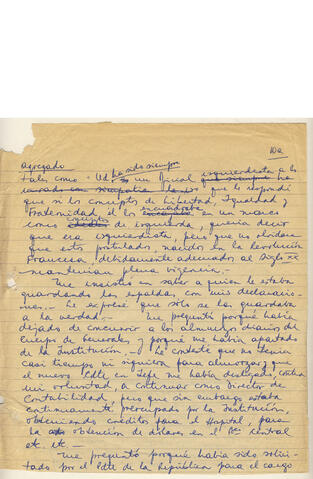 10a
agregado
ha sido siempre izquierdista a lo
tales como "Ud es un Oficial que siempre ha
mirado con simpatía las", que le respondí
que si los conceptos de Libertad, Igualdad y
Fraternidad él los encuadraba en un marco
como conceptos de izquierda, quería decir
que era izquierdista, pero que no olvidara
que estos postulados, nacidos en la Revolución
Francesa, debidamente adecuados al siglo XX
mantenían plena vigencia.-
Me insistió en saber a quien le estaba
guardando las espaldas con mis declaracio-
nes.- Le expresé que sólo se las guardaba
a la verdad.- Me preguntó porqué había
dejado de concurrir a los almuerzos diarios del
Cuerpo de Generales y porqué me había apartado
de la Institución.- Le contesté que no tenía
casi tiempo ni siquiera para almorzar; que
el nuevo Cdte. en Jefe me había destinado, contra
mi voluntad, a continuar como Director de
Contabilidad, pero que sin embargo estaba
continuamente preocupado por la Institución,
obteniendo créditos para el Hospital, para
la obtención de dólares en el Bco. Central
etc. etc.-
Me preguntó porqué había sido solici-
tado por el Pdte de la República para el cargo